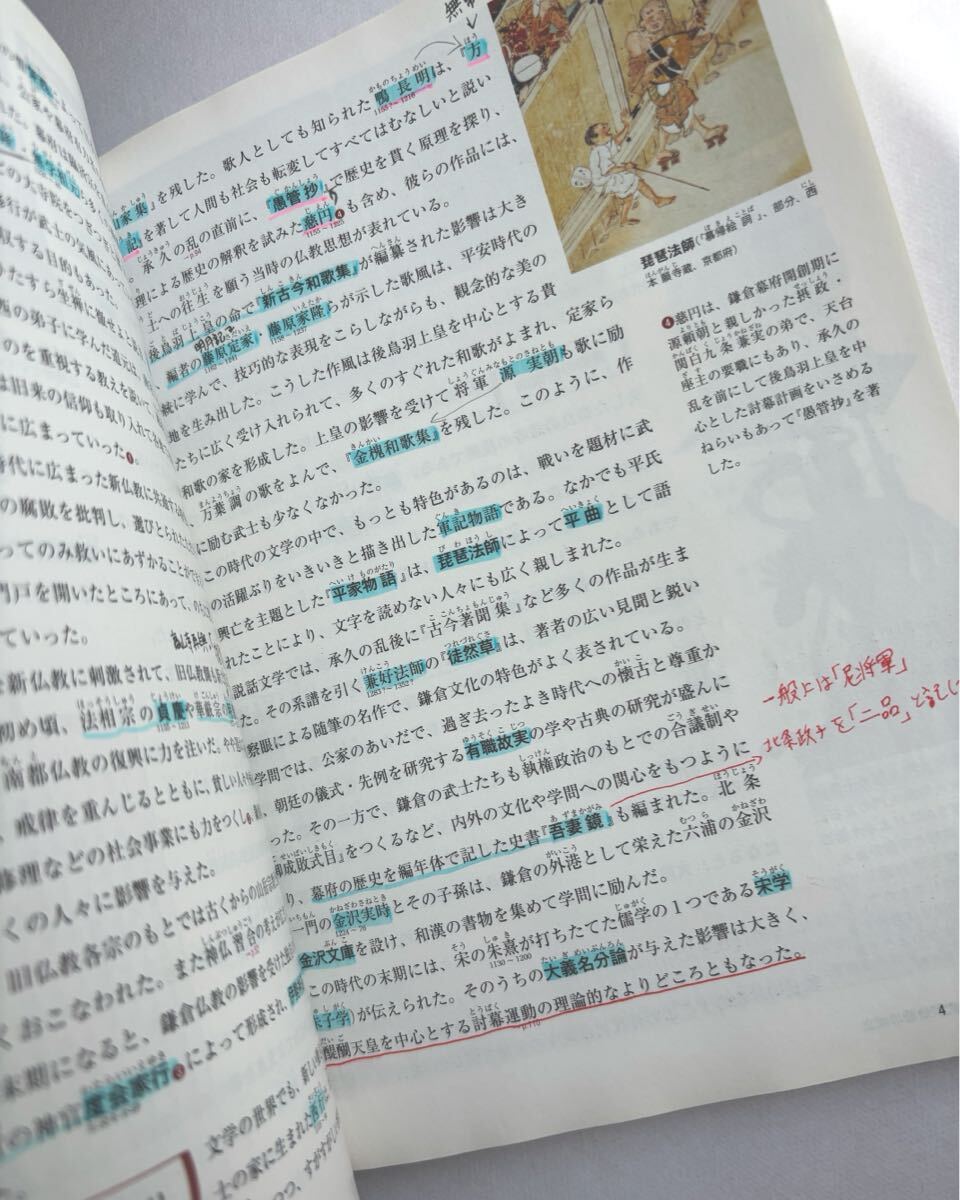 無常
鴨長明は、『方
山家集』を残した。歌人としても知られた
記』を著して人間も社会も転変してすべてはむなしいと説い
承久の乱の直前に、『愚管抄』で歴史を貫く原理を探り、
理による歴史の解釈を試みた慈円❹も含め、彼らの作品には、
土への往生を願う当時の仏教思想が表れている。
後鳥羽上皇の命で『新古今和歌集』が編纂された影響は大き
明月記
編者の藤原定家・藤原家隆らが示した歌風は、平安時代の
統に学んで、技巧的な表現をこらしながらも、観念的な美の
地を生み出した。こうした作風は後鳥羽上皇を中心とする貴
たちに広く受け入れられて、多くのすぐれた和歌がよまれ、定家ら
和歌の家を形成した。上皇の影響を受けて将軍源実朝も歌に励
万葉調の歌をよんで、『金槐和歌集』を残した。このように、作
に励む武士も少なくなかった。
この時代の文学の中で、もっとも特色があるのは、戦いを題材に武
の活躍ぶりをいきいきと描き出した軍記物語である。なかでも平氏
興亡を主題とした『平家物語』は、琵琶法師によって平曲として語
れたことにより、文字を読めない人々にも広く親しまれた。
説話文学では、承久の乱後に『古今著聞集』など多くの作品が生ま
た。その系譜を引く兼好法師の『徒然草』は、著者の広い見聞と鋭い
察眼による随筆の名作で、鎌倉文化の特色がよく表されている。
学問では、公家のあいだで、過ぎ去ったよき時代への懐古と尊重か
、朝廷の儀式・先例を研究する有職故実の学や古典の研究が盛んに
った。その一方で、鎌倉の武士たちも執権政治のもとでの合議制や
御成敗式目』をつくるなど、内外の文化や学問への関心をもつように
り、幕府の歴史を編年体で記した史書『吾妻鏡』も編まれた。北条
一門の金沢実時とその子孫は、鎌倉の外港として栄えた六浦の金沢
金沢文庫を設け、和漢の書物を集めて学問に励んだ。
この時代の末期には、宋の朱熹が打ちたてた儒学の1つである宋学
朱子学)が伝えられた。そのうちの大義名分論が与えた影響は大きく、
醍醐天皇を中心とする討幕運動の理論的なよりどころともなった。
琵琶法師(「慕帰絵詞」、部分、西
本願寺蔵、京都府)
❹慈円は、鎌倉幕府開創期に
源頼朝と親しかった摂政・
関白九条兼実の弟で、天台
座主の要職にもあり、承久の
乱を前にして後鳥羽上皇を中
心とした討幕計画をいさめる
ねらいもあって『愚管抄』を著
した。
一般上は「尼将軍」
北条政子を「二品」と記し
4
この大寺院をつぎつぎ
修行が武士の気風にあっ
収する目的もあった。
西の弟子に学んだ道元は、
のを重視する教えを説いて
は旧来の信仰も取り入れ
に広まっていった❶。
時代に広まった新仏教に共通する
の腐敗を批判し、選びとられた
ってのみ救いにあずかることができ
門戸を開いたところにあって、
ていった。
新仏教に刺激されて、旧仏教側も
初め頃、法相宗の貞慶や華厳宗の
南都仏教の復興に力を注いだ。やや
、戒律を重んじるとともに、貧しい人
修理などの社会事業にも力をつくし
くの人々に影響を与えた。
旧仏教各宗のもとでは古くからの山岳
くおこなわれた。また神仏習合の考えが
末期になると、鎌倉仏教の影響を受けた
の神官度会家行❸によって形成され、
文学の世界でも、新しい
士の家に生まれた西行